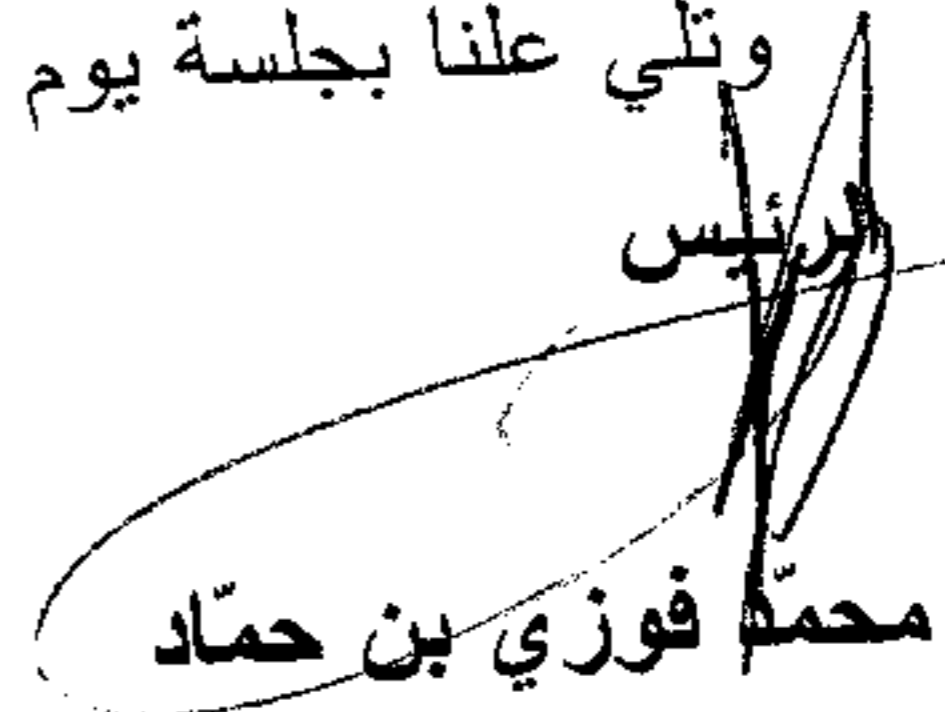 وتلي علنا بجلسة يوم
الرئيس
محمّد فوزي بن حمّاد